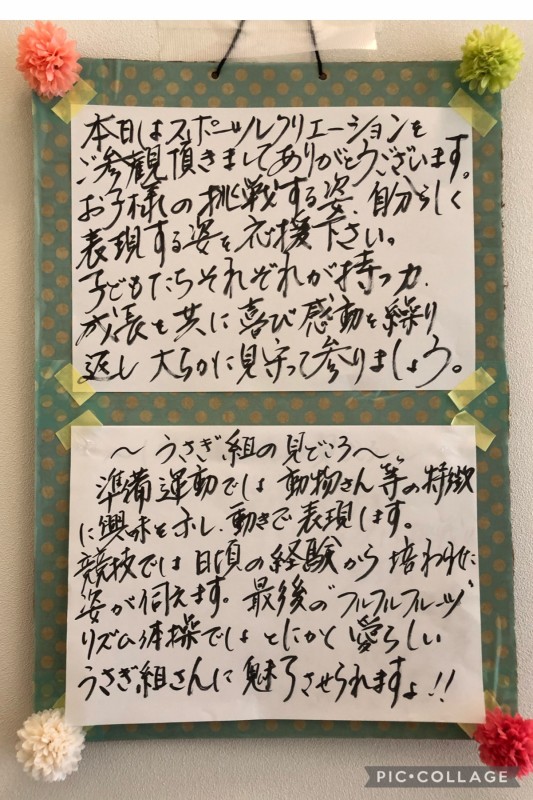 本日はスポーツレクリエーションを
ご参観頂きましてありがとうございます。
お子様の挑戦する姿、自分らしく
表現する姿を応援下さい。
子どもたちそれぞれが持つ力、
成長を共に喜び感動を繰り
返し大らかに見守って参りましょう。
〜うさぎ組の見どころ〜
準備運動では動物さん等の特徴
に興味を示し、動きで表現します。
競技では日頃の経験から培われた
姿が伺えます。最後の"フルフルフルーツ"
リズム体操ではとにかく愛らしい
うさぎ組さんに魅了させられますよ!!
PIC•COLLAGE